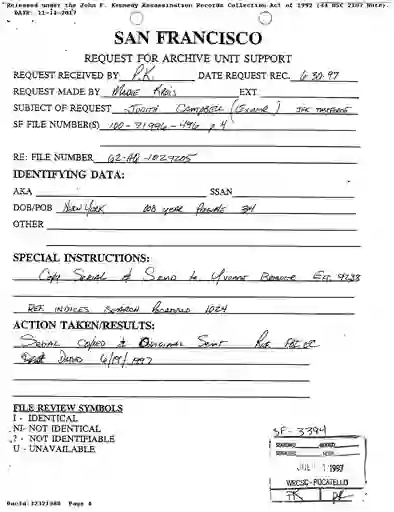 Released under the John F. Kennedy Assassination Records Collection Act of 1992 (44 USC 2107 Note).
DATE: 11-14-2017
SAN FRANCISCO
REQUEST FOR ARCHIVE UNIT SUPPORT
REQUEST RECEIVED BY P.K. DATE REQUEST REC. 6-30-97
REQUEST MADE BY EXT
SUBJECT OF REQUEST JUDITH CAMPBELL (EXNER) JFK
SF FILE NUMBER(S) 100-71996-496 p 4
RE: FILE NUMBER 62-HQ-1029205
IDENTIFYING DATA:
AKA SSAN
DOB/POB NEW YORK DOB YEAR 34
OTHER
SPECIAL INSTRUCTIONS:
COPY SERIAL & SEND to YVONNE EXT. 9238
REF. INDICES SEARCH 1024
ACTION TAKEN/RESULTS:
SERIAL COPIED & ORIGINAL SENT
DATED 6/19/1997
FILE REVIEW SYMBOLS
I - IDENTICAL
NI- NOT IDENTICAL
? - NOT IDENTIFIABLE
U - UNAVAILABLE
SF-3394
1 1997
WRCSC-POCATELLO
PK
DocId:32321980 Page 4